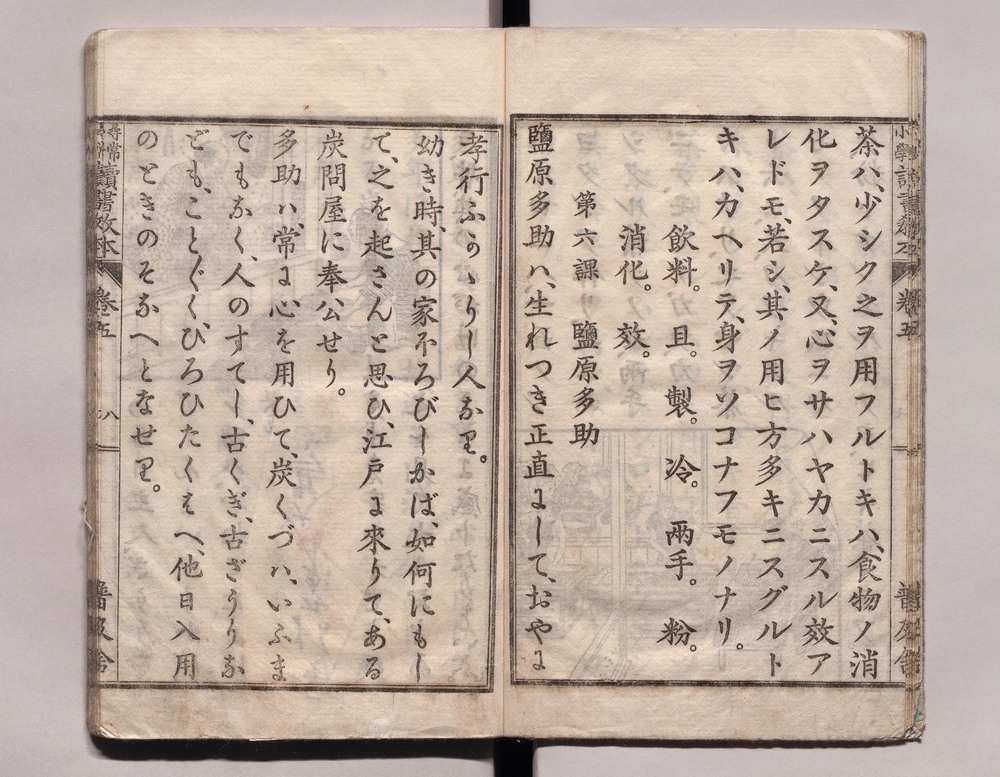 茶ハ、少シク之ヲ用フルトキハ、食物ノ消
化ヲタスケ、又、心ヲサハヤカニスル效ア
レドモ、若シ、其ノ用ヒ方多キニスグルト
キハ、カヘリテ、身ヲソコナフモノナリ。
飲料。且。製。冷。兩手。粉。
消化。效。
第六課 鹽原多助
鹽原多助ハ、生れつき正直にして、おやに
孝行ふかゝりし人なり。
幼き時、其の家ほろびしかば、如何にもし
て、之を起さんと思ひ、江戸に來りて、ある
炭問屋に奉公せり。
多助ハ、常に心を用ひて、炭くづハ、いふま
でもなく、人のすてし、古くぎ、古ざうりな
ども、こと〴〵くひろひたくはへ、他日入用
のときのそなへとなせり。
尋常小學讀書教本 卷五 八 普及舍